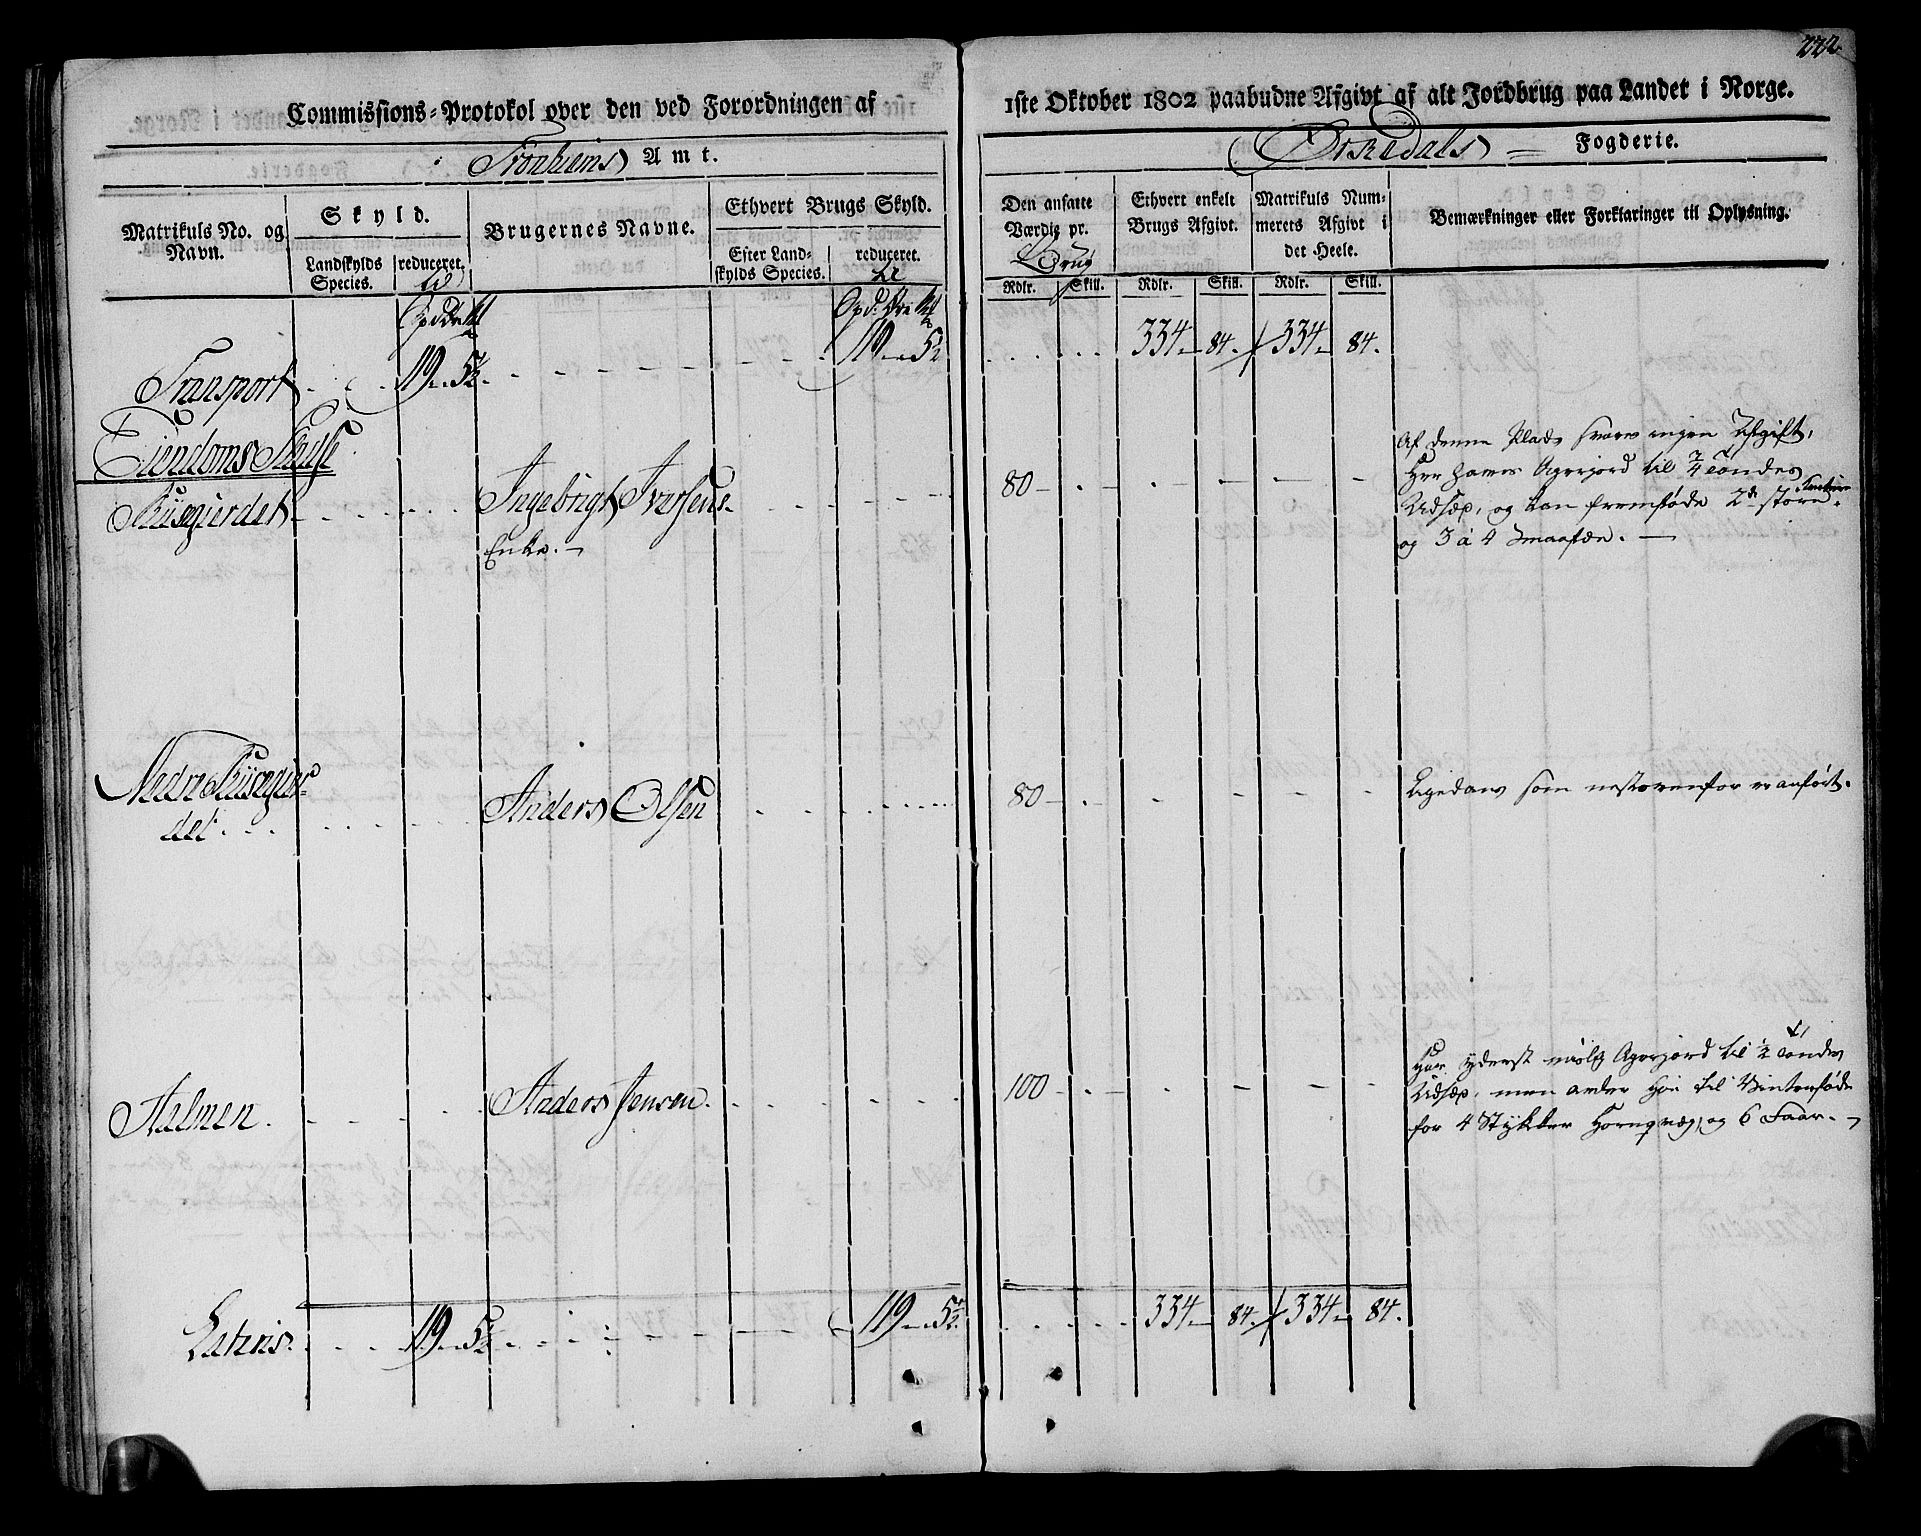 222
Commissions-Protokol over den ved Forordningen af
i Tronhiems Amt.
Matrikuls No. og Navn.
Skyld.
Landskylds Species.
reduceret.
til
Brugernes Navne.
Ethvert Brugs Skyld.
Efter Landskylds Species.
reduceret.
til
Transport
119 5½
119 5½
Eiendoms
Ingebrigt Iversens
Enke.
Nedre
det
Anders Olsen
Aalmen.
Anders Jensen.
Lateris.
119 5½
119 5½
1ste Oktober 1802 paabudne Afgivt af alt Jordbrug paa Landet i Norge.
Orkedals Fogderie.
Den ansatte Værdie pr.
Brug
Rdlr. Skill.
Ethvert enkelt Brugs Afgivt.
Rdlr. Skill.
Matrikuls Nummerets Afgivt i det Heele.
Rdlr. Skill.
Bemærkninger eller Forklaringer til Oplysning.
334 84. 334 84.
80
Af denne Plads svares ingen Afgift,
Her haves Agerjord til ¾ Tønde
Udsæd, og kan fremføde 2de store
og 3 à 4 Smaafæ.
80
Ligedan som nestovenfor er anført.
100
Har yderst Agerjord til ½ Tønde
Udsæd, men Høe til Vinterføde
for 4 Stykker Hornqvæg, og 6 Faar.
334 84. 334 84.